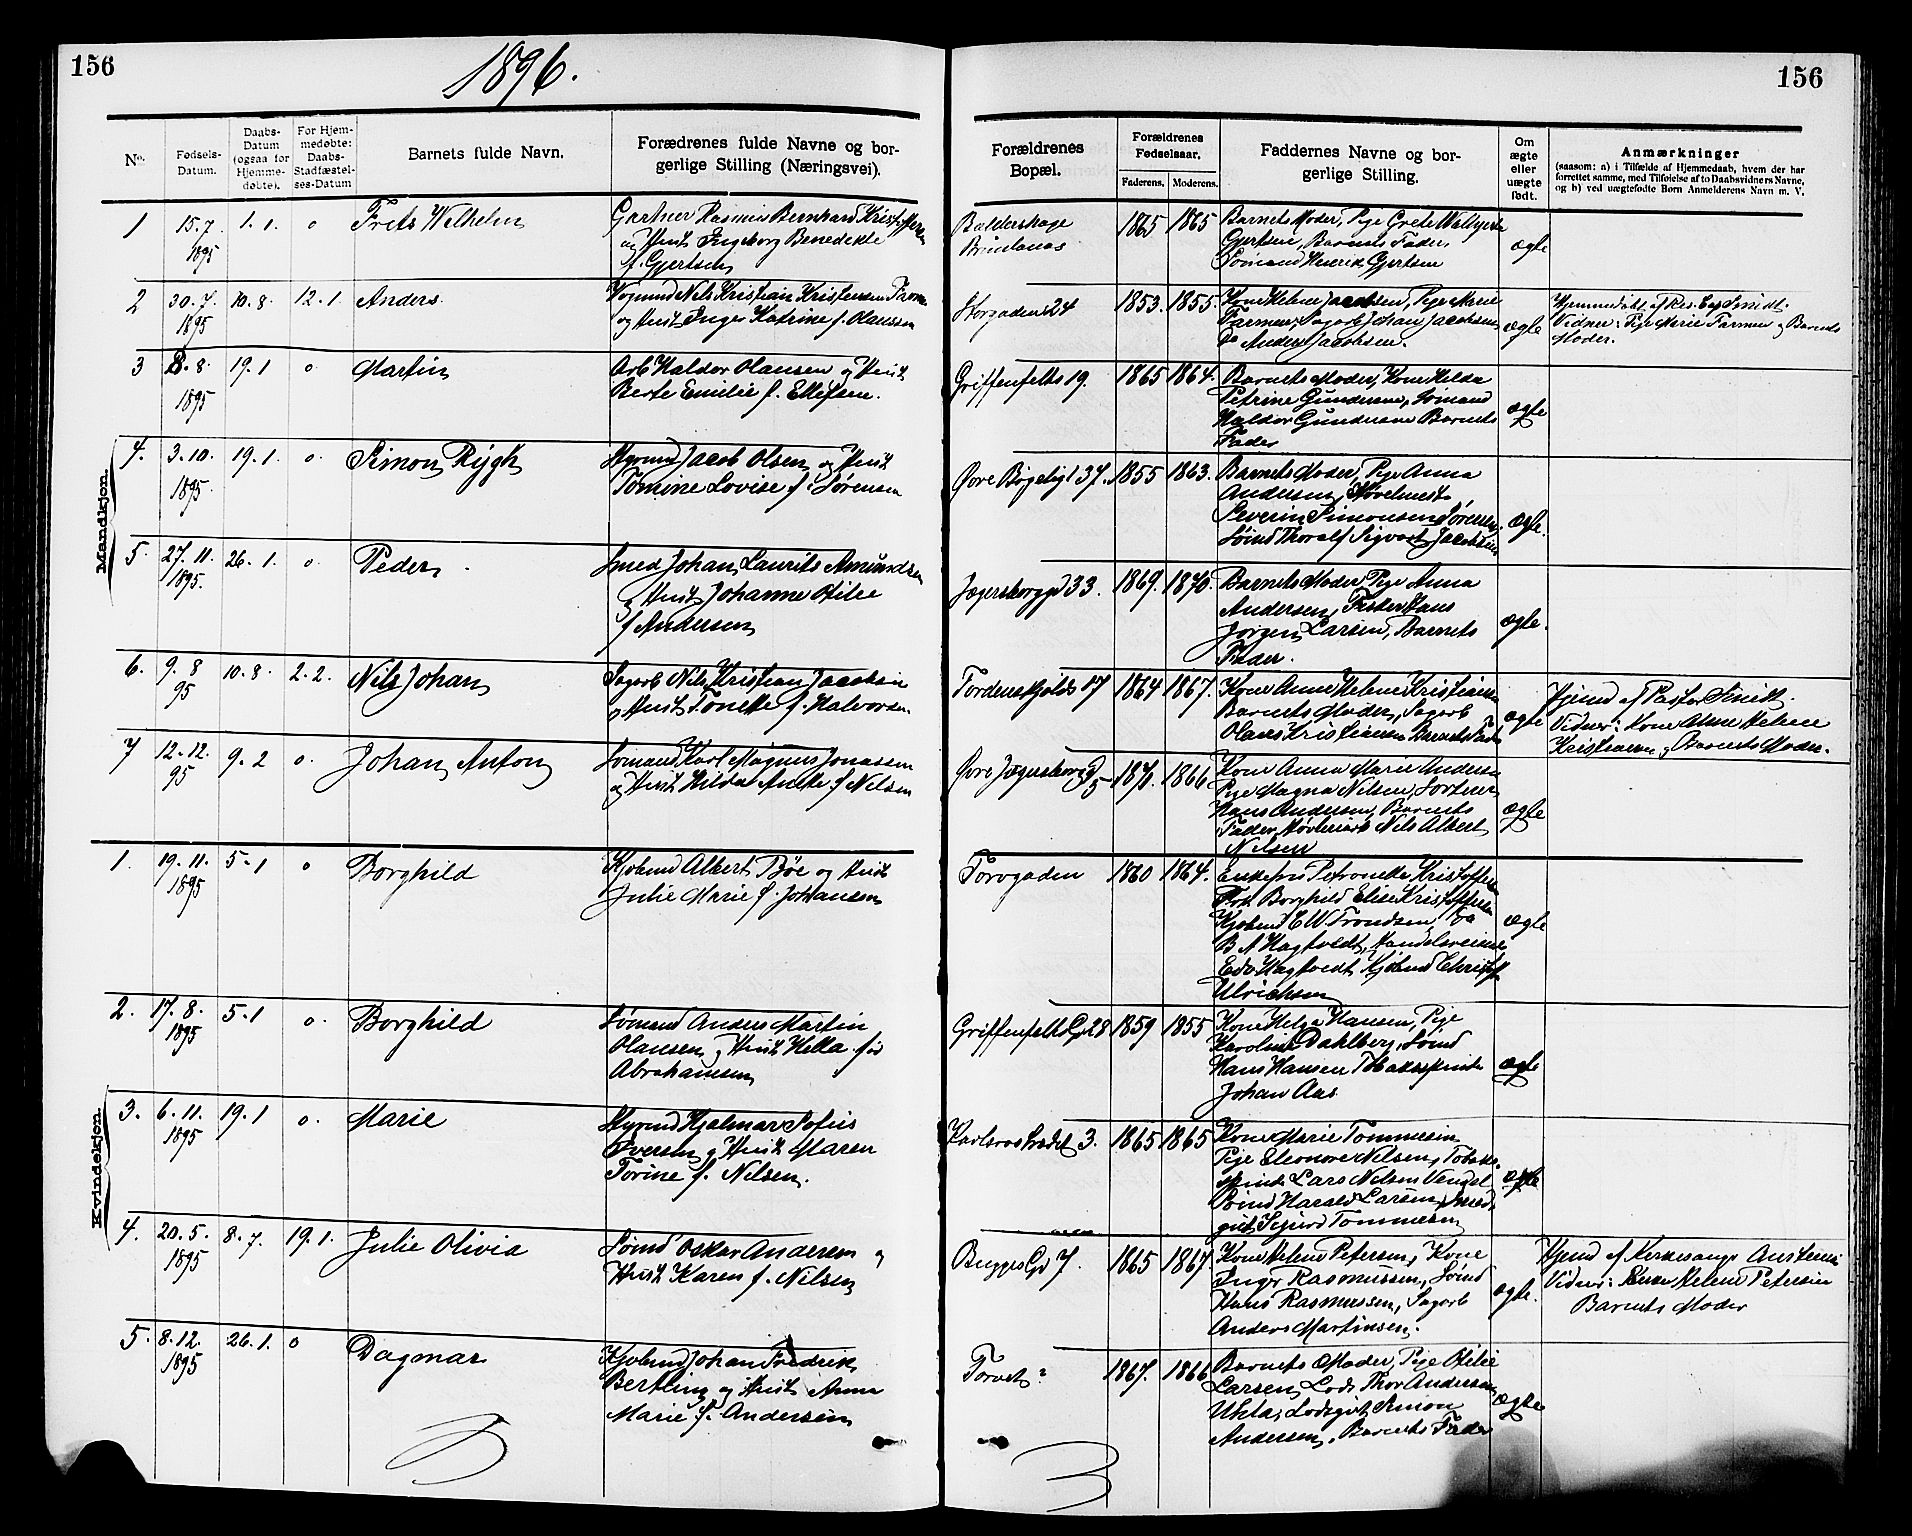 156
1896.
156
No.
Fødsels-
Datum.
Daabs-
Datum
(ogsaa for
Hjemme-
døbte).
For Hjem-
medøbte:
Daabs-
Stadfæstel-
ses-Datum
Barnets fulde Navn.
Forædrenes fulde Navne og bor-
gerlige Stilling (Næringsvei).
Forældrenes
Bopæl.
Forældrenes
Fødselsaar.
Faderens. Moderens.
Faddernes Navne og bor-
gerlige Stilling.
Om
ægte
eller
uægte
født.
Anmærkninger
(saasom: a) i Tilfælde af Hjemmedaab, hvem der har
forrettet samme, med Tilføielse af to Daabsvidners Navne,
og b) ved uægtefødte Børn Anmelderens Navn m. V.
Mandkjøn.
1 15.7 1895 1.1. o Frits Wilhelm
Gartner Rasmus Bernhard Kristoffersen
og Hust Ingeborg Benedikte
f. Gjertsen
1865 1865
Barnets Moder, Pige Grete
Gjertsen, Barnets Fader,
Sømand Henrik Gjertsen
ægte
2 30.7. 1895 10.8. 12.1. Anders
Nils Kristian Kristensen
og Hust Inger Katrine f. Olaussen
Storgaden 24 1853. 1855.
Kone Helene Jacobsen, Pige Marie
Farmen, Sagarb Johan Jacobsen
Do Anders Jacobsen.
ægte
Vidner: Pige Marie Farmen og Barnets
Moder.
3 8.8. 1895 19.1 o Martin
Arb Haldor Olausen og Hust
Berte Emilie f. Ellefsen.
Griffenfelts 19. 1865 1864.
Barnets Moder, Kone Hilda
Petrine Gundersen, Sømand
Haldor Gundersen Barnets
Fader
ægte
4. 3.10. 1895. 19.1. o. Simon Rygh
Styrmd Jacob Olsen og Hust
Tomine Lovise f. Sørensen
Øvre Bøgeligt 37. 1855 1863.
Barnets Moder, Pige Anna
Andersen,
Severin Simonsen Sørensen,
Sømd Thoralf Sigvart Jacobsen
ægte.
5. 27.11. 1895. 26.1. o. Peder
Smed Johan Laurits Amundsen
og Hust Johanne Otilie
f Andersen
Jegersborggd 33. 1869. 1870.
Barnets Moder, Pige Anna
Andersen, Fisker Hans
Jørgen Larsen, Barnets
Fader.
ægte.
6. 9.8 95 10.8. 2.2. Nils Johan
Sagarb Nils Kristian Jacobsen
og Hust Tonette f. Halvorsen
Tordenskjolds 17 1864 1867.
Kone Anne Helene Kristiansen
Barnets Moder, Sagarb
Olaus Kristiansen Barnets Fader
ægte
Hjemd af Pastor Smidt.
Vidner: Kone Anne Helene
Kristiansen og Barnets Moder.
7 12.12. 95 9.2 o. Johan Anton
Sømand Karl Magnus Jonassen
og Hust Hilda Anette f Nilsen
Øvre Jegersborggd 5 1870. 1866
Kone Anna Marie Andersen
Pige Magna Nilsen,
Hans Andersen, Barnets
Fader, Nils Albert
Nilsen
ægte
Kvindekjøn.
1. 19.11. 1895 5.1 o Borghild
Kjøbmd Albert Bøe og Hust
Julie Marie f. Johansen
Torvgaden 1860 1864.
Enkefru Petronella Kristoffersen
Frk Borghild Elise Kristoffersen
Kjøbmd E W Trondsen, Fru
B N Hagtvedt, Handelsreisende
Edv Hagtvedt Kjøbmd Christ
Ulrichsen
ægte
2. 17.8. 1895 5.1 o. Borghild
Sømand Anders Martin
Olausen og Hust Hella fød
Abrahamsen
Griffenfelts Gd 28 1859 1855
Kone Helga Hansen, Pige
Karoline Dahlberg, Sømd
Hans Hansen
Johan Aas
ægte
3. 6.11. 1895 19.1 o. Marie
Styrmd Hjalmar Sofus
Iversen og Hust Maren
Torine f. Nilsen.
3. 1865 1865
Kone Marie Tommesen
Pige Eleonore Nilsen,
Lars Nilsen
Sømd Harald Larsen, Smed
gut Sigurd Tommesen
ægte
4. 20.5. 1895 8.7. 19.1. Julie Olivia
Sømd Oskar Andersen og
Hust Karen f. Nilsen
Bugges Gd 7. 1865 1867
Kone Helene Petersen, Kone
Inger Rasmussen, Sømd
Hans Rasmussen, Sagarb
Anders Martinsen.
ægte.
Hjemd af Kirkesanger
Vidner: Kone Helene Petersen
Barnets Moder
5. 8.12. 1895 26.1. o Dagmar
Kjøbmd Johan Fredrik
Bertling og Hust Anne
Marie f. Andersen
Torvet? 1867. 1866
Barnets Moder, Pige Otilie
Larsen, Lods Thor Andersen
Ula, Lodsgut Simon
Andersen, Barnets Fader
ægte